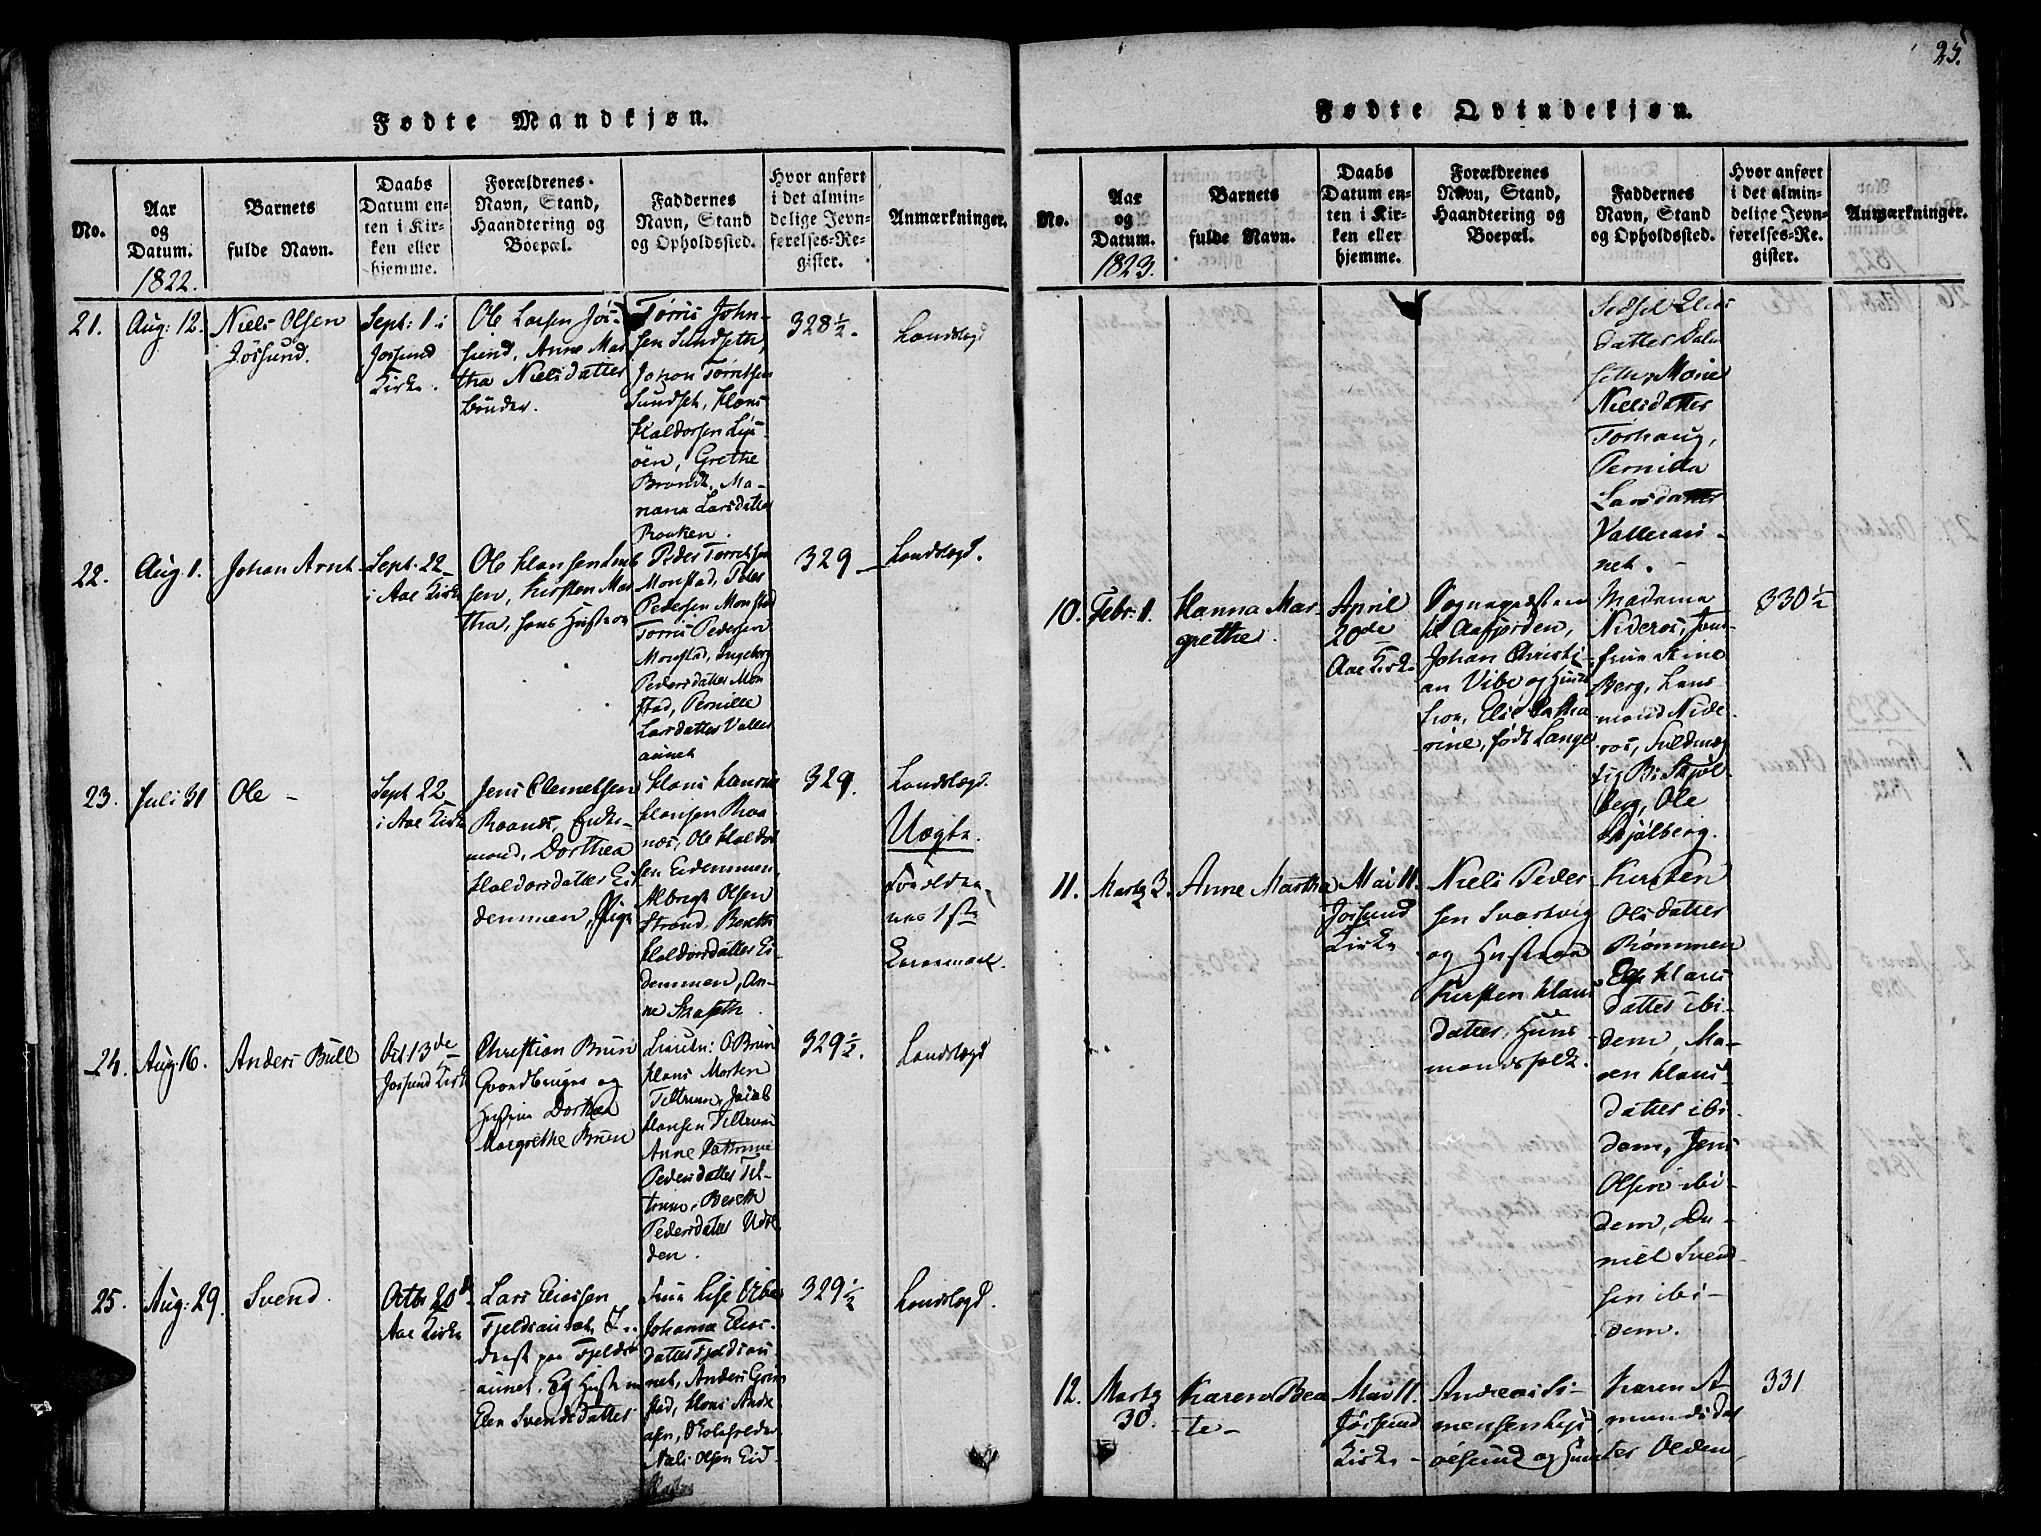 25.
Fødte Mandkjøn.
No.
Aar
og
Datum.
1822.
Barnets
fulde Navn.
Daabs
Datum en-
ten i Kir-
ken eller
hjemme.
Forældrenes
Navn, Stand,
Haandtering og
Boepæl.
Faddernes
Navn, Stand
og Opholdssted.
Hvor anført
i det almin-
delige Jevn-
førelses-Re-
gister.
Anmærkninger.
21.
Aug: 12.
Niels Olsen
Jøssund.
Sept: 1 i
Jossund
Kirke.
Ole Larsen Jøs-
sund, Anne Mar
tha Nielsdatter
Bønder.
Tørris John-
sen Sundseth,
Johan Tørrissen
Sundset, Hans
Haldorsen Lys-
øen, Grethe
Brandt, Ma-
riana Larsdatter
Raaken.
328½.
22.
Aug 1.
Johan Arnt
Sept. 22
i Aae Kirke
Ole Hansen
sen, Kirsten Mar
tha, hans Hustrue
Peder Tørrissen
Monstad, Peter
Pedersen Monstad
Tørris Pedersen
Monstad, Ingeborg
Pedersdatter Mon
stad, Pernille
Larsdatter Valler
aunet
329
23.
Juli 31
Ole
Sept 22
i Aae Kirke
Jens Clemetsen
Raanes, Enke-
mand, Dorthea
Haldorsdatter Ei
demmen, Pige
Hans Lauris
Hansen Raa
nes, Ole Haldor
sen Eidemmen,
Albregt Olsen
Strand, Bereth
Haldorsdatter Ei-
demmen, An-
ne
329.
Uægte.
Forældre-
nes 1ste
24.
Aug: 16.
Anders Bull
Oct 13de
Jossund Kirke
Christian Brun
Grondbruger og
Hustrue Dorthea
Margrethe Brun
O Brun
Hans Morten
Teltrum, Jacob
Hansen Teltrum
Anne Cathrine
Pedersdatter Tel-
trum, Bereth
Pedersdatter
den.
329½.
25.
Aug: 29.
Svend.
Octbr 20de
Aae Kirke
Lars Eliassen
Fjeldsaunet,
paa Fjelds
aunet. Og Hustrue
Elen Svendsdatter
Lise Vibe
Johanna Elias-
datter Fjeldsau
net, Anders Grin
stad, Hans
Niels Olsen Eid
329½
Fødte Qvindekjøn.
No.
Aar
og
Datum.
1823.
Barnets
fulde Navn.
Daabs
Datum en-
ten i Kir-
ken eller
hjemme.
Forældrenes
Navn, Stand,
Haandtering og
Boepæl.
Faddernes
Navn, Stand
og Opholdssted.
Hvor anført
i det almin-
delige Jevn-
førelses-Re-
gister.
Anmærkninger.
Elias
datter
Marie
Nielsdatter
Torhaug,
Pernilla
Larsdatter
Vallerau-
net.
10.
Febr: 1.
Hanna Mar-
grethe.
April
20de
Aae Kirke
Sognepræsten
til Aafjorden,
Johan Christi-
an Vibe og Hu
Else Catha
rine, født Lange
Madame
Nideros, Jom-
frue
Berg,
mand Nide-
ros, Fuldmæg
tig B: Skjøl
berg, Ole
Skjølberg.
330½
11.
Martz 3.
Anne Martha
Mai 11.
Jossund
Kirke
Niels Peder-
sen Svartvig
og Hustrue
Kirsten Hans
datter, Huus
mandsfolk.
Kirsten
Olsdatter
Rømmen
Hans
datter ibi-
dem, Ma-
ren Hans
datter ibi-
dem, Jens
Olsen ibi-
dem, Da-
niel Svend
sen ibi-
dem.
12.
Martz
30.
Karen Bea
te
Mai 11.
Jøssund
Kirke
Andreas Si-
monsen Lys
øesund og
Karen A-
mundsdat
ter Olden,
331